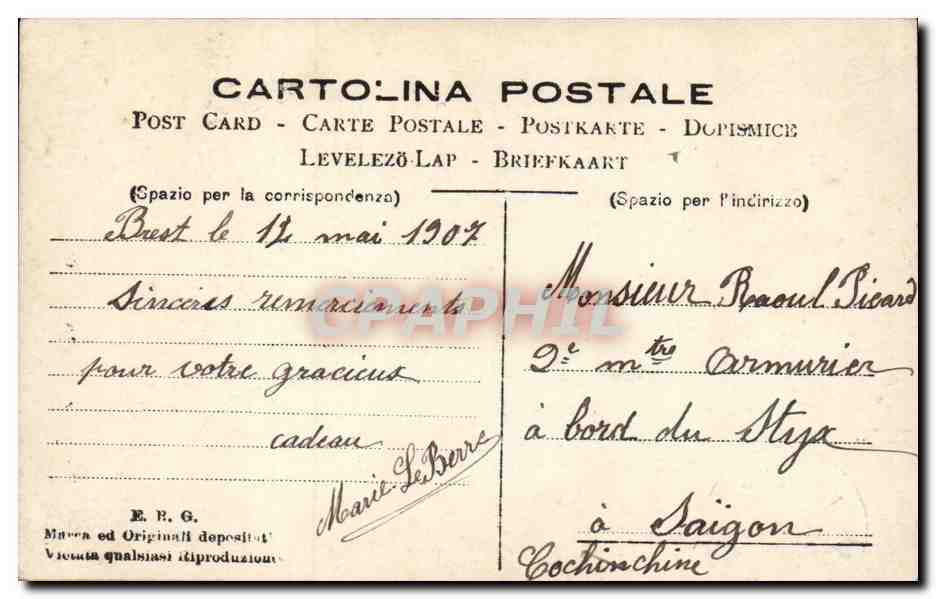 CARTOLINA POSTALE
POST CARD - CARTE POSTALE - POSTKARTE - DOPISMICE
LEVELEZÖ-LAP - BRIEFKAART
(Spazio per la corrispondenza)
Brest le 12 mai 1907
Sincères remerciements
pour votre gracieux
cadeau
Marie Le Berre
E. R. G.
Marca ed Originali depositat
Vietata qualsiasi Riproduzione
(Spazio per l'indirizzo)
Monsieur Raoul Picard
2e mtre Armurier
à bord du Styx
à Saigon
Cochinchine
CPAPHIL